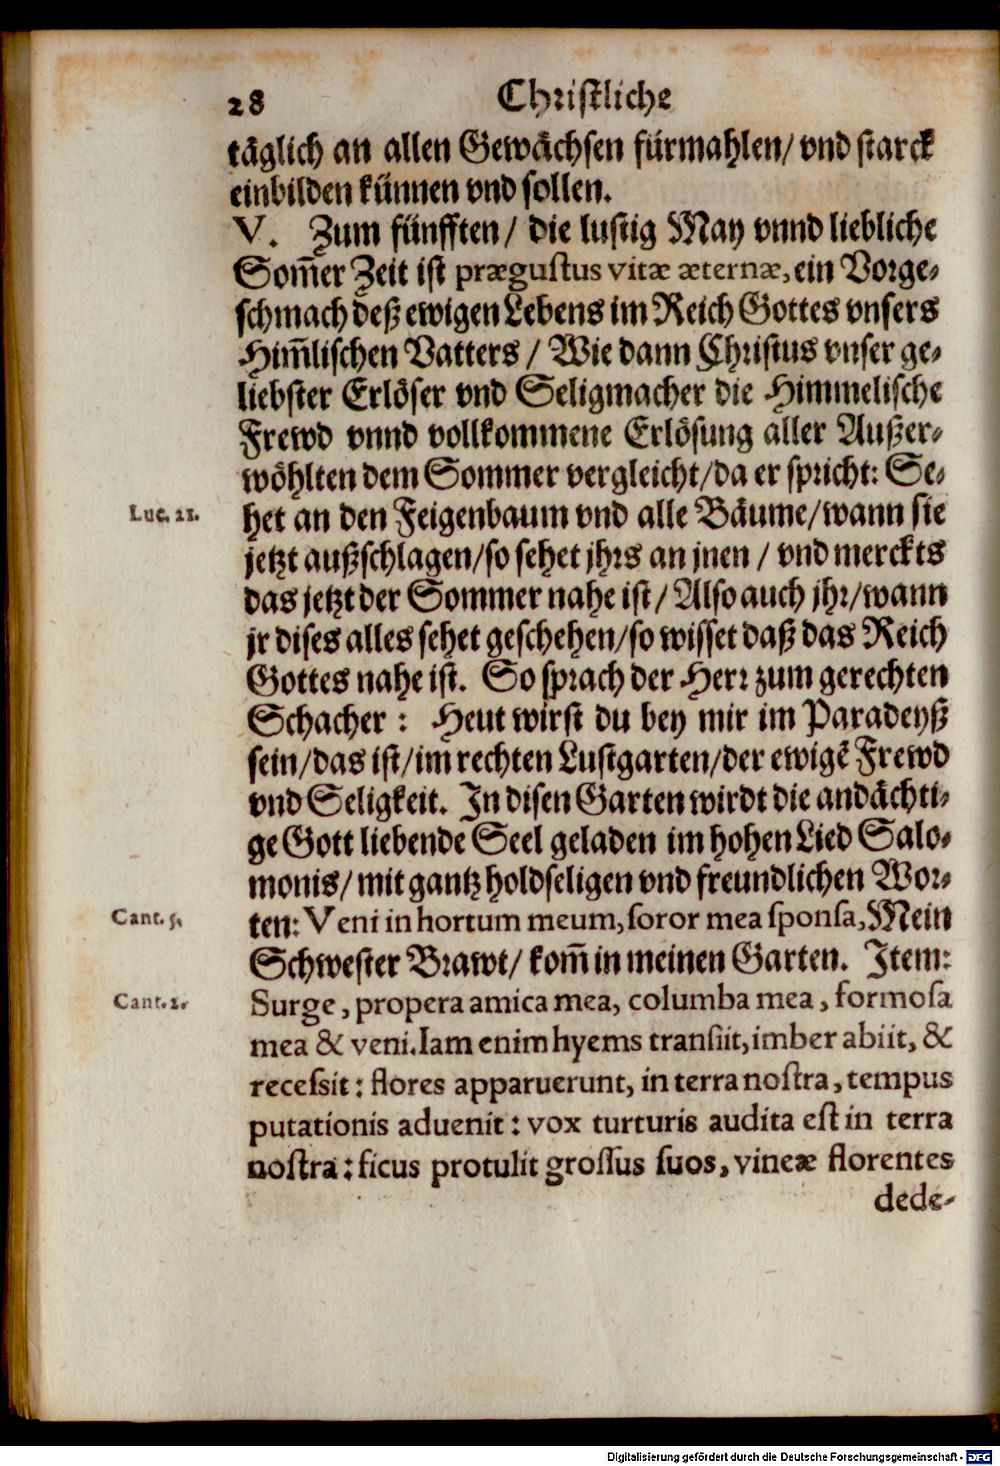 28 Christliche
täglich an allen Gewächsen fürmahlen/ vnd starck
einbilden künnen vnd sollen.
V. Zum fünfften/ die lustig May vnnd liebliche
Som̃er Zeit ist prægustus vitæ æternæ, ein Vorge-
schmach deß ewigen Lebens im Reich Gottes vnsers
Him̃lischen Vatters / Wie dann Christus vnser ge-
liebster Erlöser vnd Seligmacher die Himmelische
Frewd vnnd vollkommene Erlösung aller Außer-
wöhlten dem Sommer vergleicht/ da er spricht: Se-
Luc. 21. het an den Feigenbaum vnd alle Bäume/ wann sie
jetzt außschlagen/ so sehet jhrs an jnen / vnd merckts
das jetzt der Sommer nahe ist/ Also auch jhr/ wann
jr dises alles sehet geschehen/ so wisset daß das Reich
Gottes nahe ist. So sprach der Herr zum gerechten
Schacher : Heut wirst du bey mir im Paradeyß
sein/ das ist/ im rechten Lustgarten/ der ewigẽ Frewd
vnd Seligkeit. In disen Garten wirdt die andächti-
ge Gott liebende Seel geladen im hohen Lied Salo-
monis/ mit gantz holdseligen vnd freundlichen Wor-
Cant. 5. ten: Veni in hortum meum, soror mea sponsa, Mein
Schwester Brawt/ kom̃ in meinen Garten. Item:
Cant. 2. Surge, propera amica mea, columba mea, formosa
mea & veni. Iam enim hyems transiit, imber abiit, &
recessit : flores apparuerunt, in terra nostra, tempus
putationis aduenit : vox turturis audita est in terra
nostra : ficus protulit grossus suos, vineæ florentes
dede-
Digitalisierung gefördert durch die Deutsche Forschungsgemeinschaft - DFG